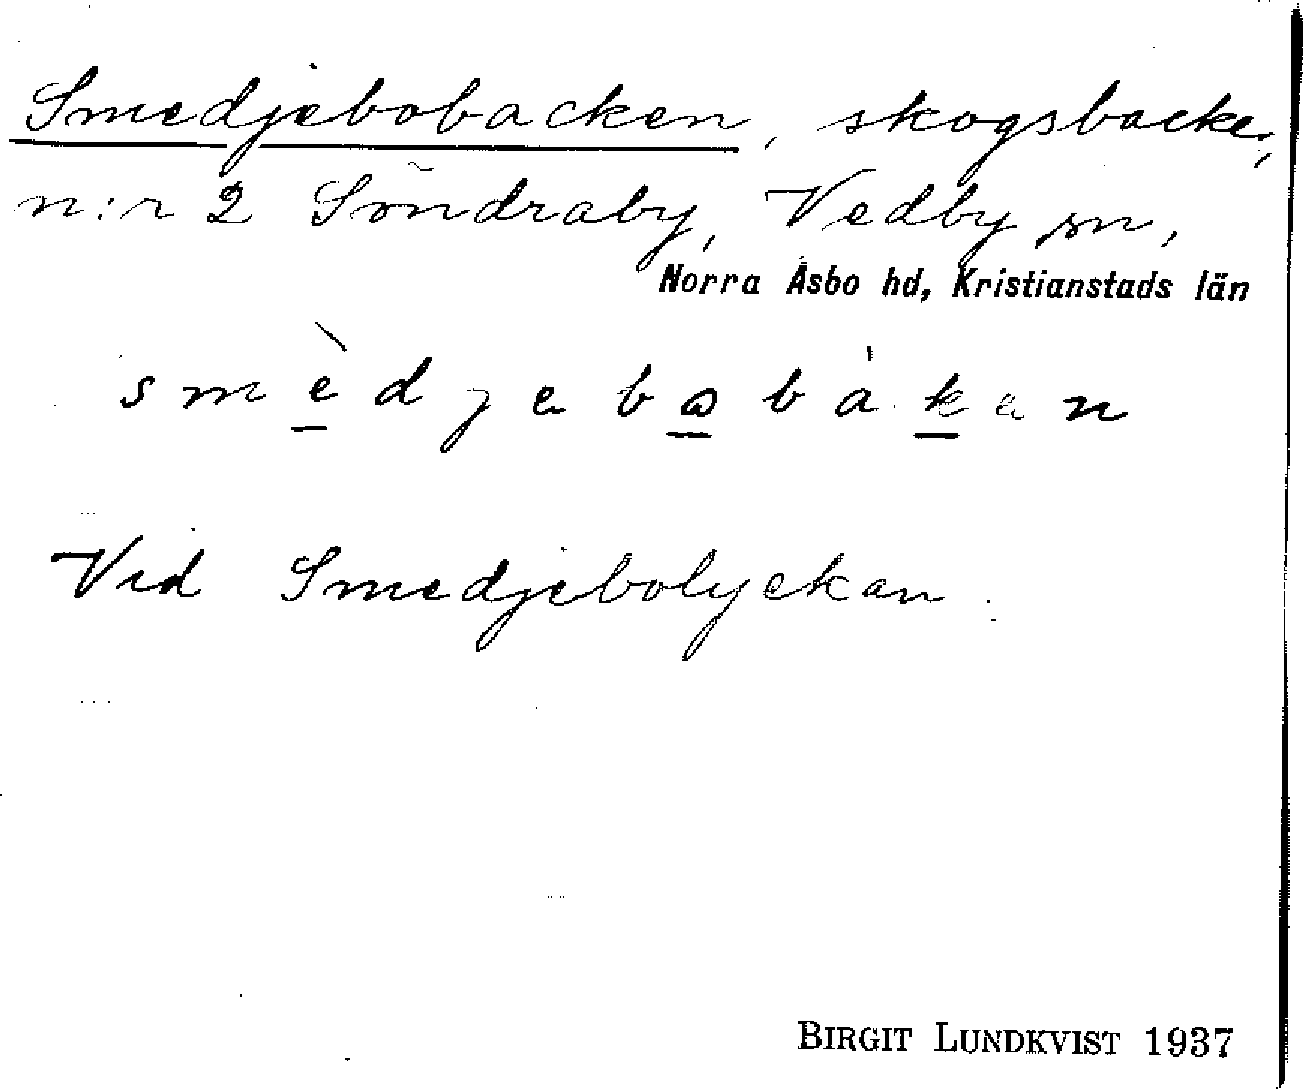 Smedjebobacken, skogsbacke,
n:r 2 Söndraby, Vedby sn,
Norra Åsbo hd, Kristianstads län
smèdjebobàkan
Vid Smedjebolyckan.
BIRGIT LUNDKVIST 1937